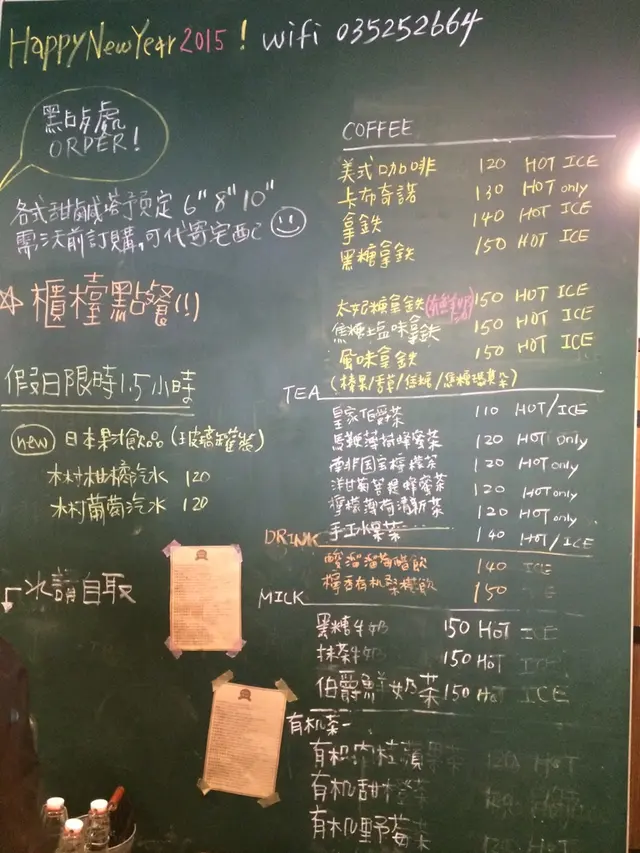 Happy New Year 2015! wifi 035252664
點餐處
ORDER!
各式甜鹹塔予預定 6" 8" 10"
需三天前訂購,可代寄宅配
☆櫃檯點餐(!)
假日限時1.5小時
new 日本果汁飲品(玻璃罐裝)
木村柑橘汽水 120
木村葡萄汽水 120
冰請自取
COFFEE
美式咖啡 120 HOT ICE
卡布奇諾 130 HOT only
拿鐵 140 HOT ICE
黑糖拿鐵 150 HOT ICE
太妃糖拿鐵 150 HOT ICE
焦糖土鹽味拿鐵 150 HOT ICE
風味拿鐵 150 HOT ICE
(榛果/香草/焦糖/焦糖瑪其朵)
TEA
皇家伯爵茶 110 HOT/ICE
馬鞭薄荷蜂蜜茶 120 HOT only
南非国宝檸檬茶 120 HOT only
洋甘菊菩提蜂蜜茶 120 HOT only
檸檬薄荷清新茶 120 HOT only
手工水果茶 140 HOT/ICE
DRINK
酸溜溜莓醋飲 140 ICE
檸香有机桑椹飲 150 ICE
MILK
黑糖牛奶 150 HOT ICE
抹茶牛奶 150 HOT ICE
伯爵鮮奶茶 150 Hot ICE
有机茶-
有机肉桂蘋果茶 120 HOT
有机甜橙茶
有机野莓茶 120 HOT